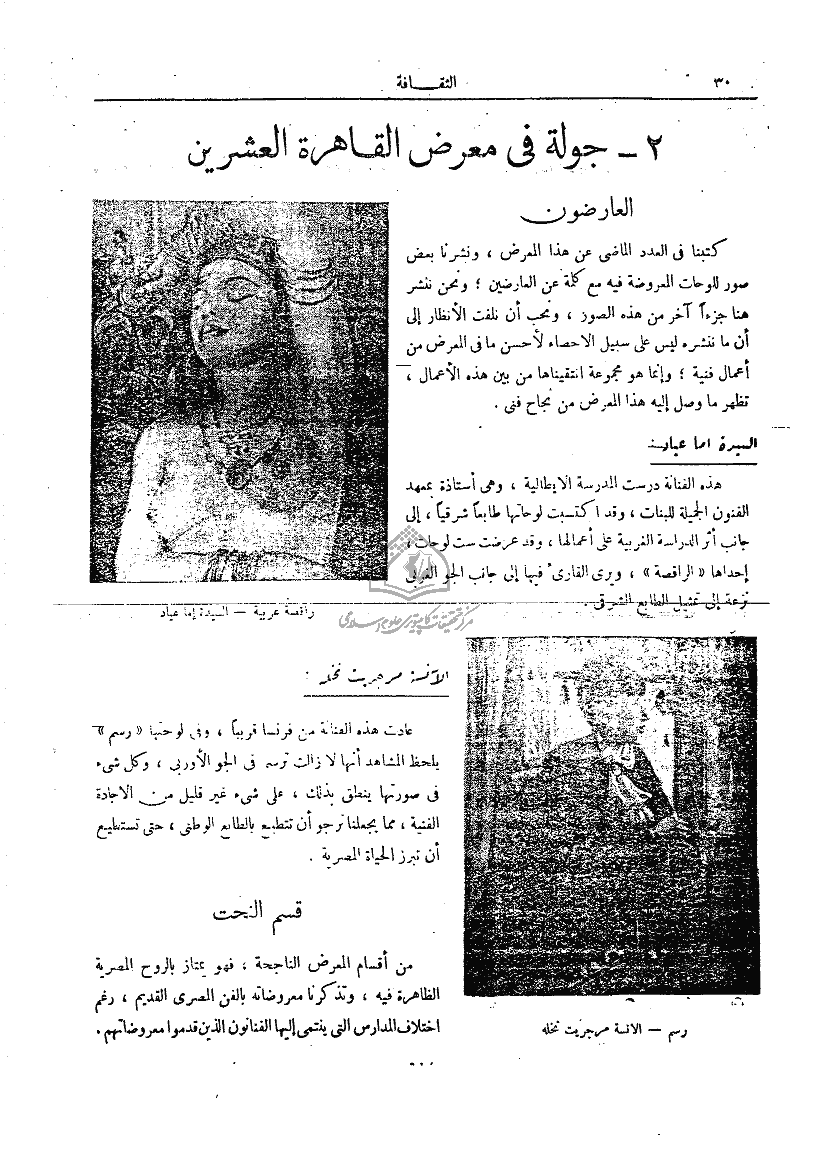 ٣٠
الثقافة
٢ – جولة فى معرض القاهرة العشرين
العارضون
كتبنا فى العدد الماضى عن هذا المعرض ، ونشرنا بعض
صور للوحات المعروضة فيه مع كلمة عن العارضين ؛ ونحن ننشر
هنا جزءاً آخر من هذه الصور ، ونحب أن نلفت الأنظار إلى
أن ما ننشره ليس على سبيل الاحصاء لأحسن ما فى المعرض من
أعمال فنية ؛ وإنما هو مجموعة انتقيناها من بين هذه الأعمال ،
تظهر ما وصل إليه هذا المعرض من نجاح فنى .
السيدة اما عياد :
هذه الفنانة درست المدرسة الايطالية ، وهى أستاذة بمعهد
الفنون الجميلة للبنات ، وقد اكتسبت لوحاتها طابعاً شرقياً ، إلى
جانب أثر الدراسة الغربية على أعمالها ، وقد عرضت ست لوحات ،
إحداها « الراقصة » ، ويرى القارىء فيها إلى جانب الجو الغربى
نزعة إلى تمثيل الطابع الشرقى .
راقصة عربية – السيدة إما عياد
مركز تحقيقات كامپيوترى علوم اسلامى
الآنسة مرجريت نخله :
عادت هذه الفنانة من فرنسا قريباً ، وفى لوحتها « رسم »
يلحظ المشاهد أنها لا زالت ترسم فى الجو الأوربى ، وكل شىء
فى صورتها ينطق بذلك ، على شىء غير قليل من الاجادة
الفنية ، مما يجعلنا نرجو أن تتطبع بالطابع الوطنى ، حتى تستطيع
أن تبرز الحياة المصرية .
قسم النحت
من أقسام المعرض الناجحة ، فهو يمتاز بالروح المصرية
الظاهرة فيه ، وتذكرنا معروضاته بالفن المصرى القديم ، رغم
اختلاف المدارس التى ينتمى إليها الفنانون الذين قدموا معروضاتهم .
رسم – الانسة مرجريت نخله
...